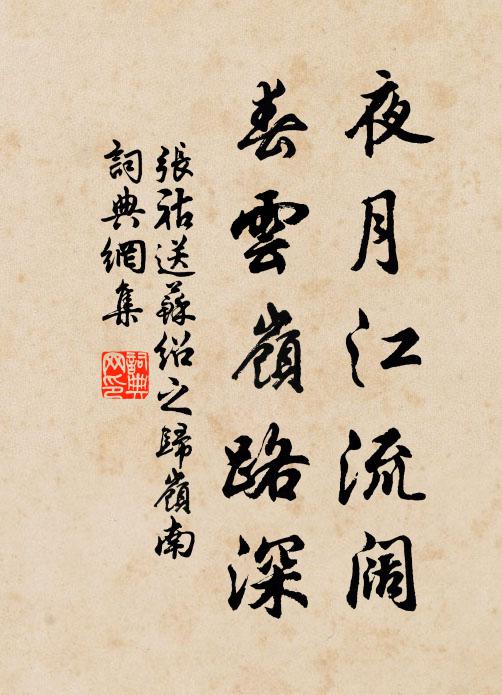 夜月江流阔
春雲嶺路深
張祜送蘇紹之歸嶺南
詞典網集
詞典网印